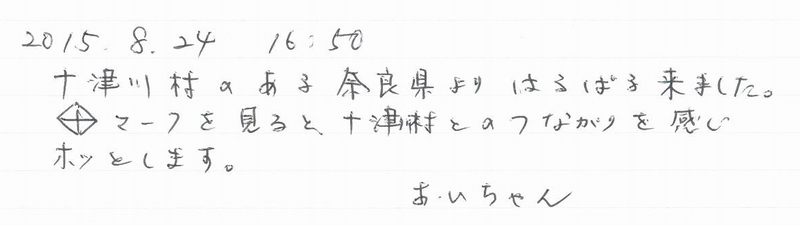 2015. 8. 24　16:50
十津川村のある奈良県より はるばる来ました。
マークを見ると、十津川村とのつながりを感じ
ホッとします。
あいちゃん